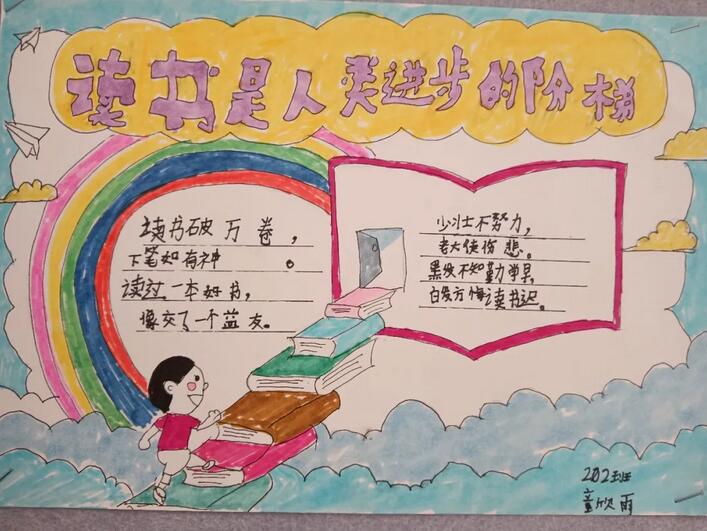 读书是人类进步的阶梯
读书破万卷，
下笔如有神。
读过一本好书，
像交了一个益友。
少壮不努力，
老大徒伤悲。
黑发不知勤学早，
白发方悔读书迟。
202班
童欣雨